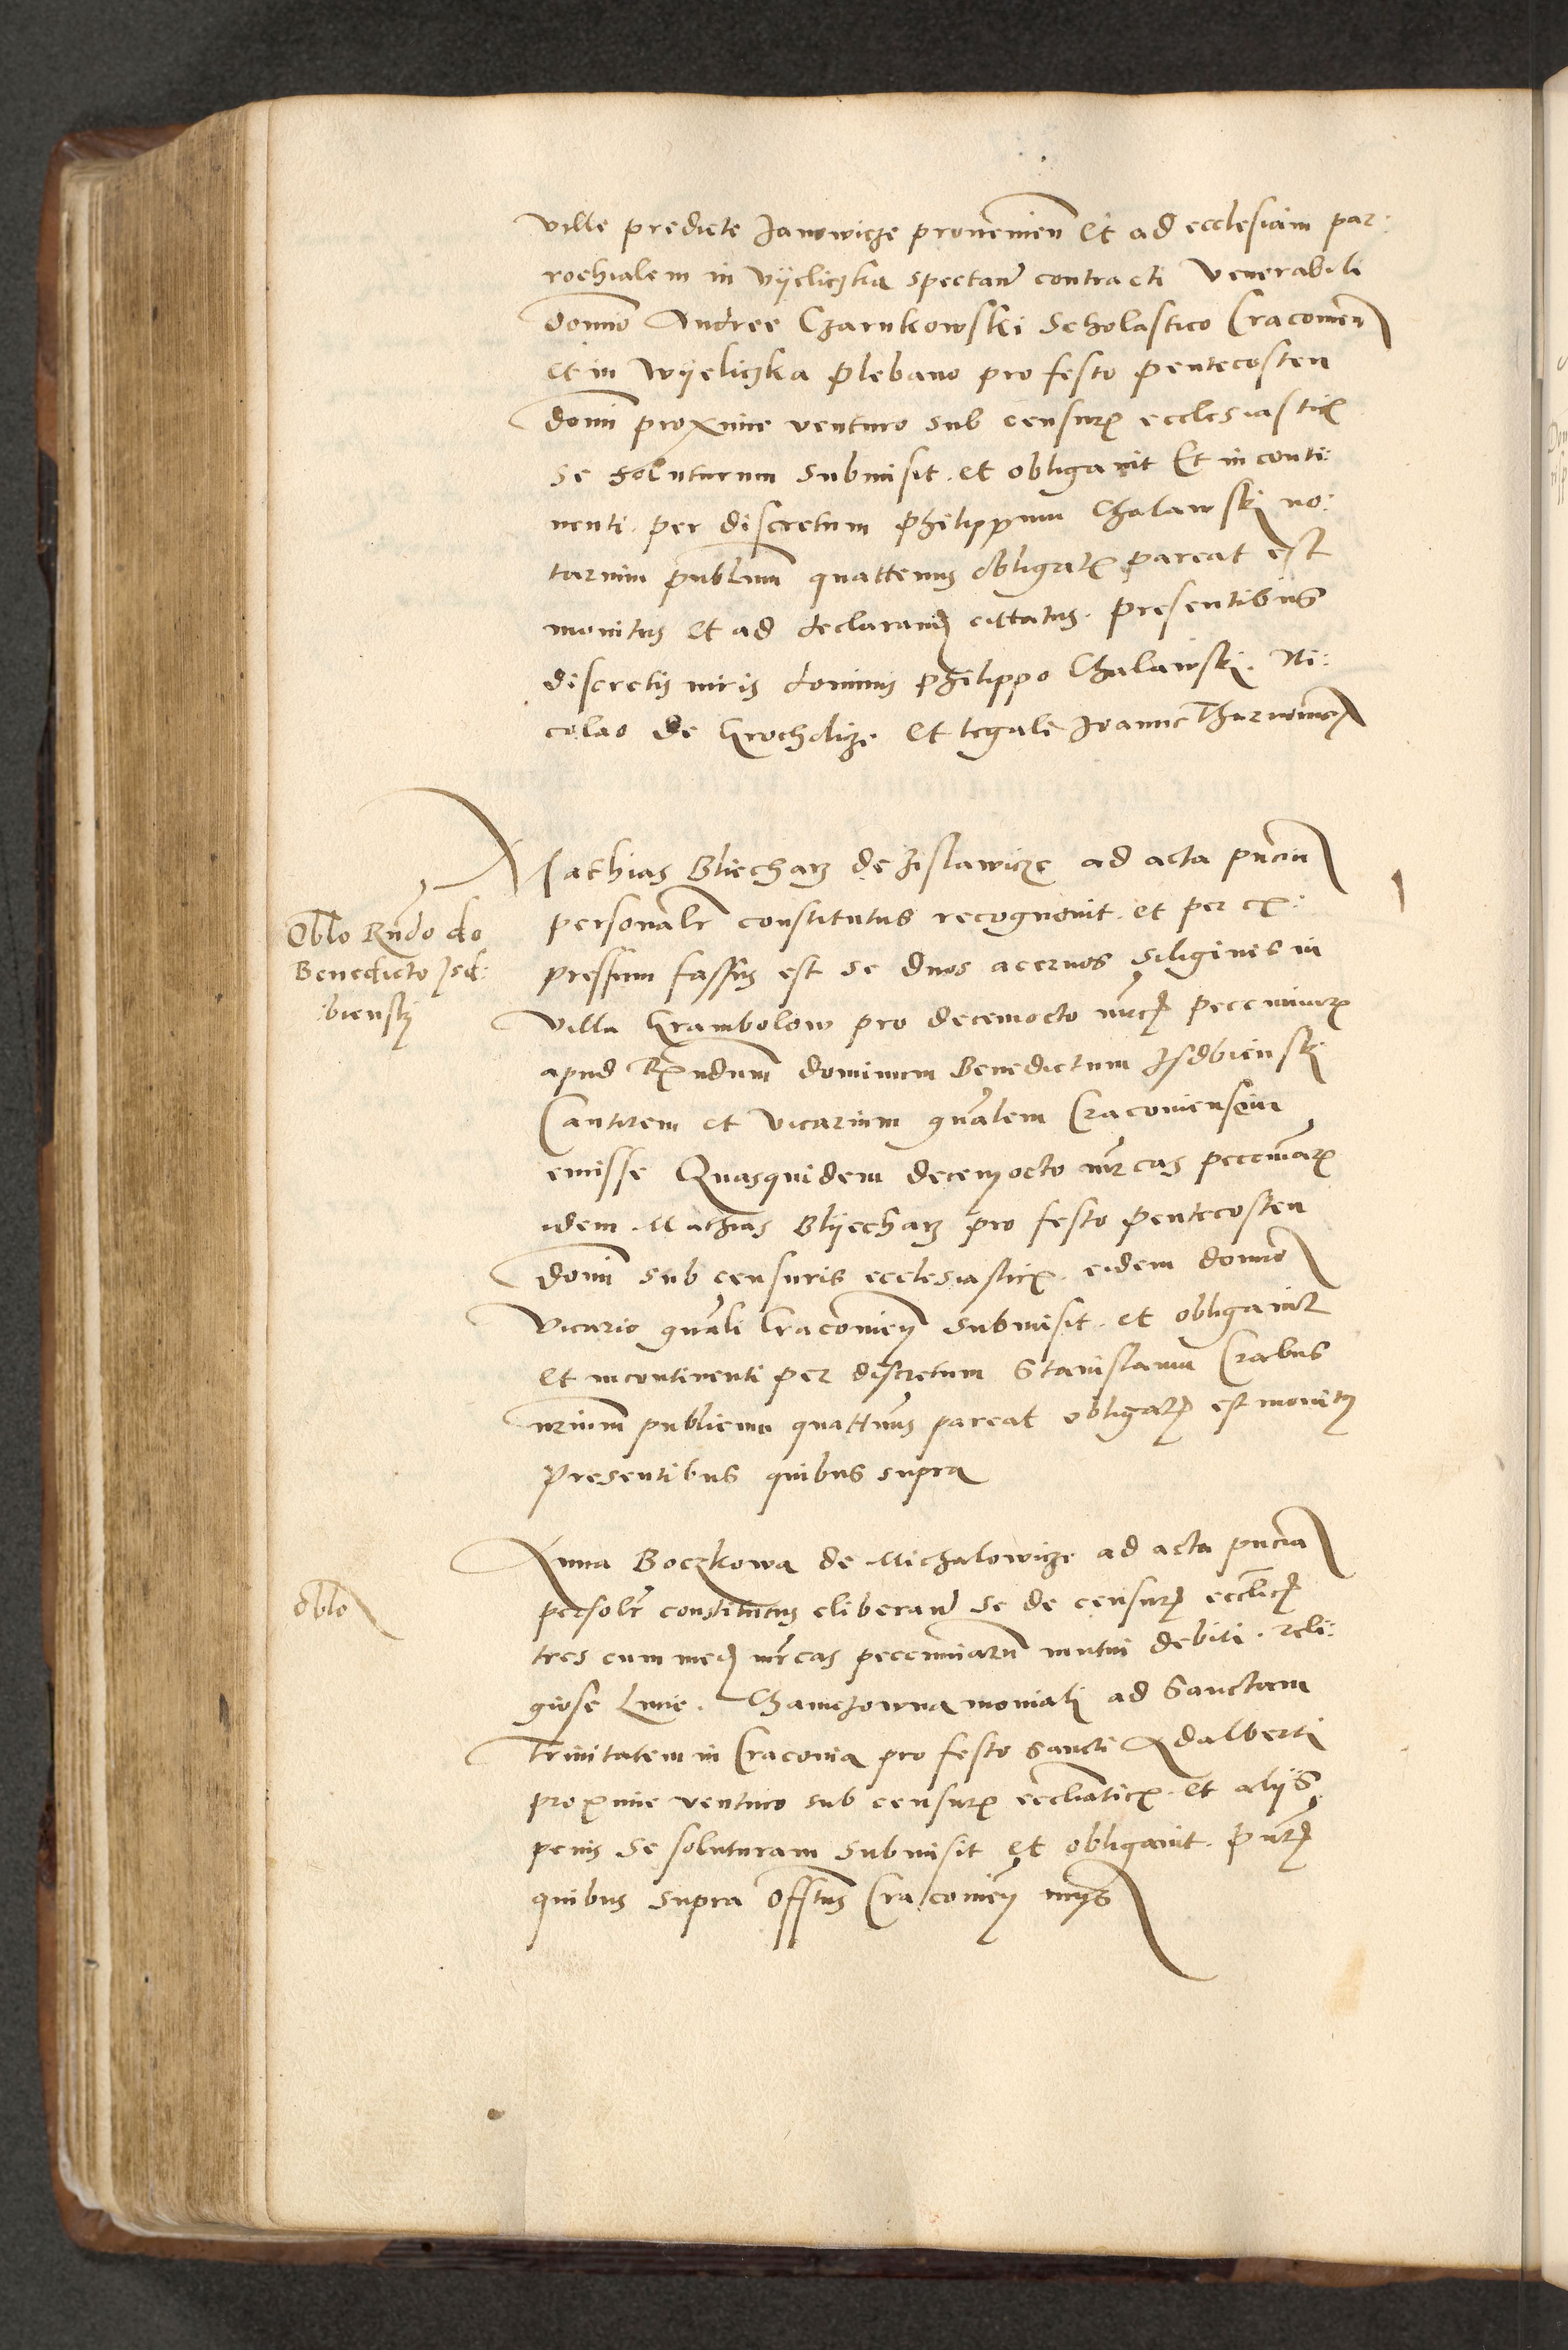 ville predicte Janowicze provenien et ad ecclesiam par:
rochialem in Vyeliczka spectan contracti Venerabili
domino Andree Czarnkowski Scholastico Cracovien
et in Wyeliczka Plebano pro festo pentecosten
domi proxime venturo sub censuris ecclesiasticis
se soluturum submisit et obligavit Et in conti:
nenti per discretum Philippum Chalawski no:
tarium publicum quattenus obligationi pareat est
monitus et ad declarand cittatus. presentibus
discretis viris dominis Philippo Chalawski. Ni:
colao de Grocholicze et legali Joanne
Mathias Bliecharz de Zislawicze ad acta pncia
Oblo Rndo do
Benedicto Isd:
bienski
personalr constitutus recognovit et per ex:
pressum fassus est se duos acervos siliginis in
villa Grambolow pro decemocto mrcis pecuniarum
apud Rndum dominum Benedictum Isdbienski
Cantorem et Vicarium gnalem Cracoviensem
emisse Quasquidem decemocto mrcas pecuniarum
idem Mathias Blyecharz pro festo pentecosten
domi sub censuris ecclesiasticis eidem domino
Vicario gnali Cracovien submisit et obligavit
et incontinenti per discretum Stanislaum Crabus
nrium publicum quattenus pareat obligationi est monitus
presentibus quibus supra
Anna Boczkowa de Michalowicze ad acta pncia
oblo
personlr constitutus eliberand se de censuris eccliis
tres cum media mrcas pecuniarum mutui debiti reli:
giose Lucie. moniali ad Sanctam
Trinitatem in Cracovia pro festo Sancti Adalberti
proxime venturo sub censuris eccliasticis et alijs
penis se soluturam submisit et obligavit. pntibus
quibus supra Cracovien